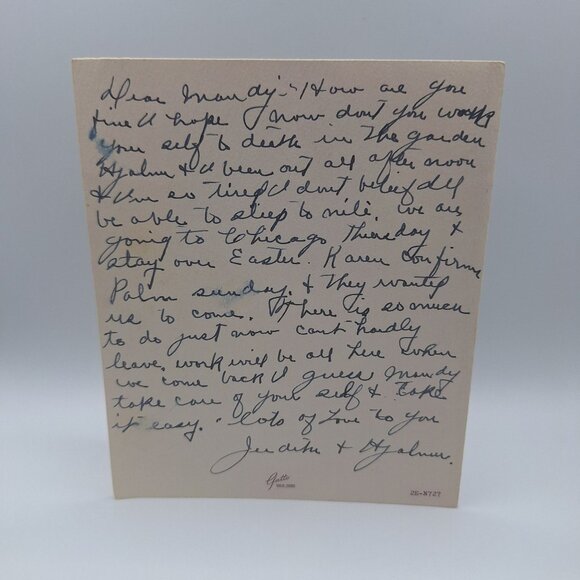 Dear Mandy:- How are you
fine I hope now dont you work
your self to death in the garden
Hjalmer & I been out all after noon
& Im so tired I dont belief Ill
be able to sleep to nite, we are
going to Chicago Thursday &
stay over Easter. Karen confirms
Palm sunday. & they wanted
us to come. There is so much
to do just now cant hardly
leave, work will be all here when
we come back I guess Mandy
take care of your self & take
it easy. lots of Love to you
Judith & Hjalmer.
2E-8727